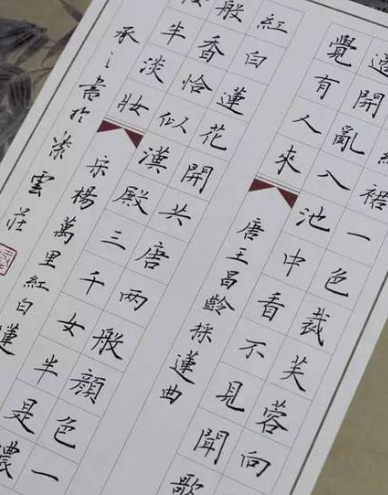 裙一色裁芙蓉向
邊開亂入池中看不見聞歌
覺有人來 唐王昌齡採蓮曲
紅白蓮花開共唐兩般顏色一
般香恰似漢殿三千女半是濃
半淡妝 宋楊萬里紅白蓮
承之書於紫雲莊